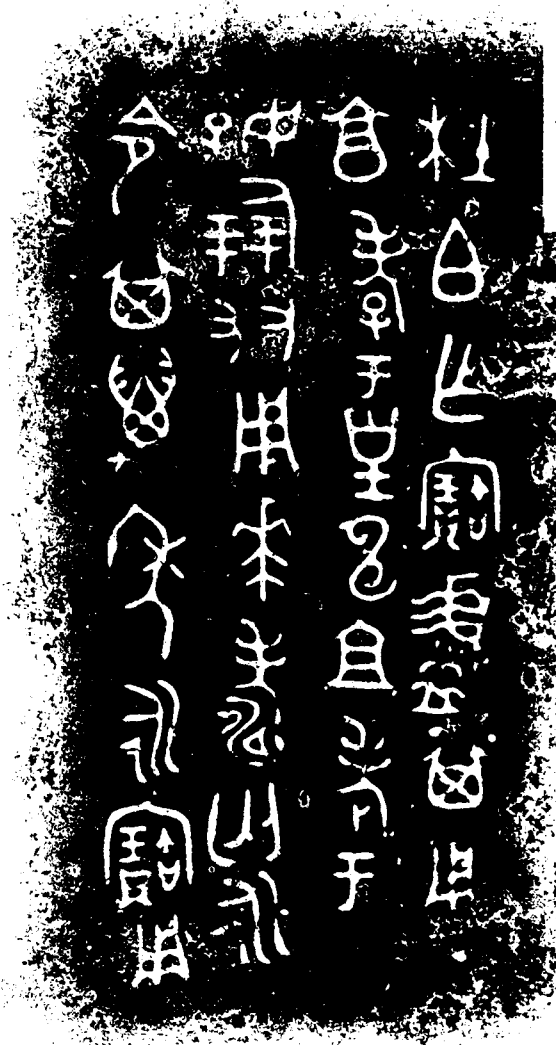 杜白乍寶盨其用
享孝于皇申且考于
好倗友用𠦪壽匃永
令其萬年永寶用